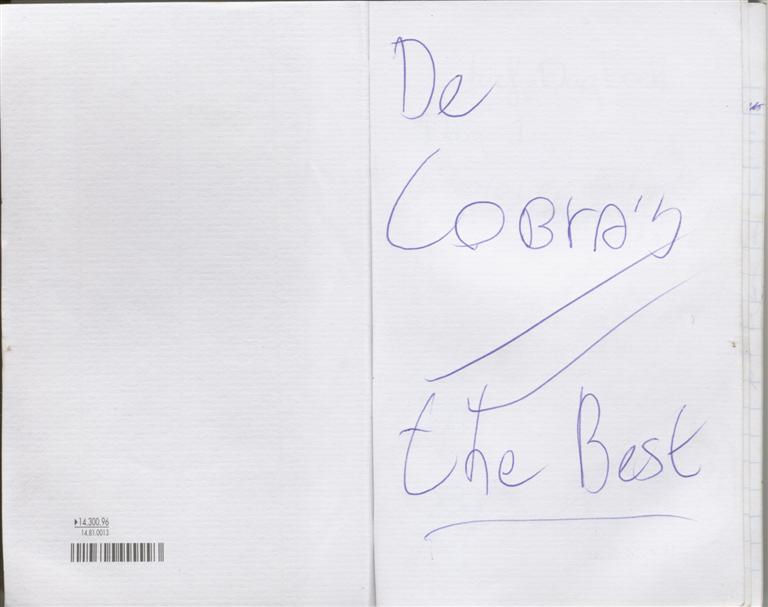 14.300.96
14.81.0013
De
Cobra's
the Best